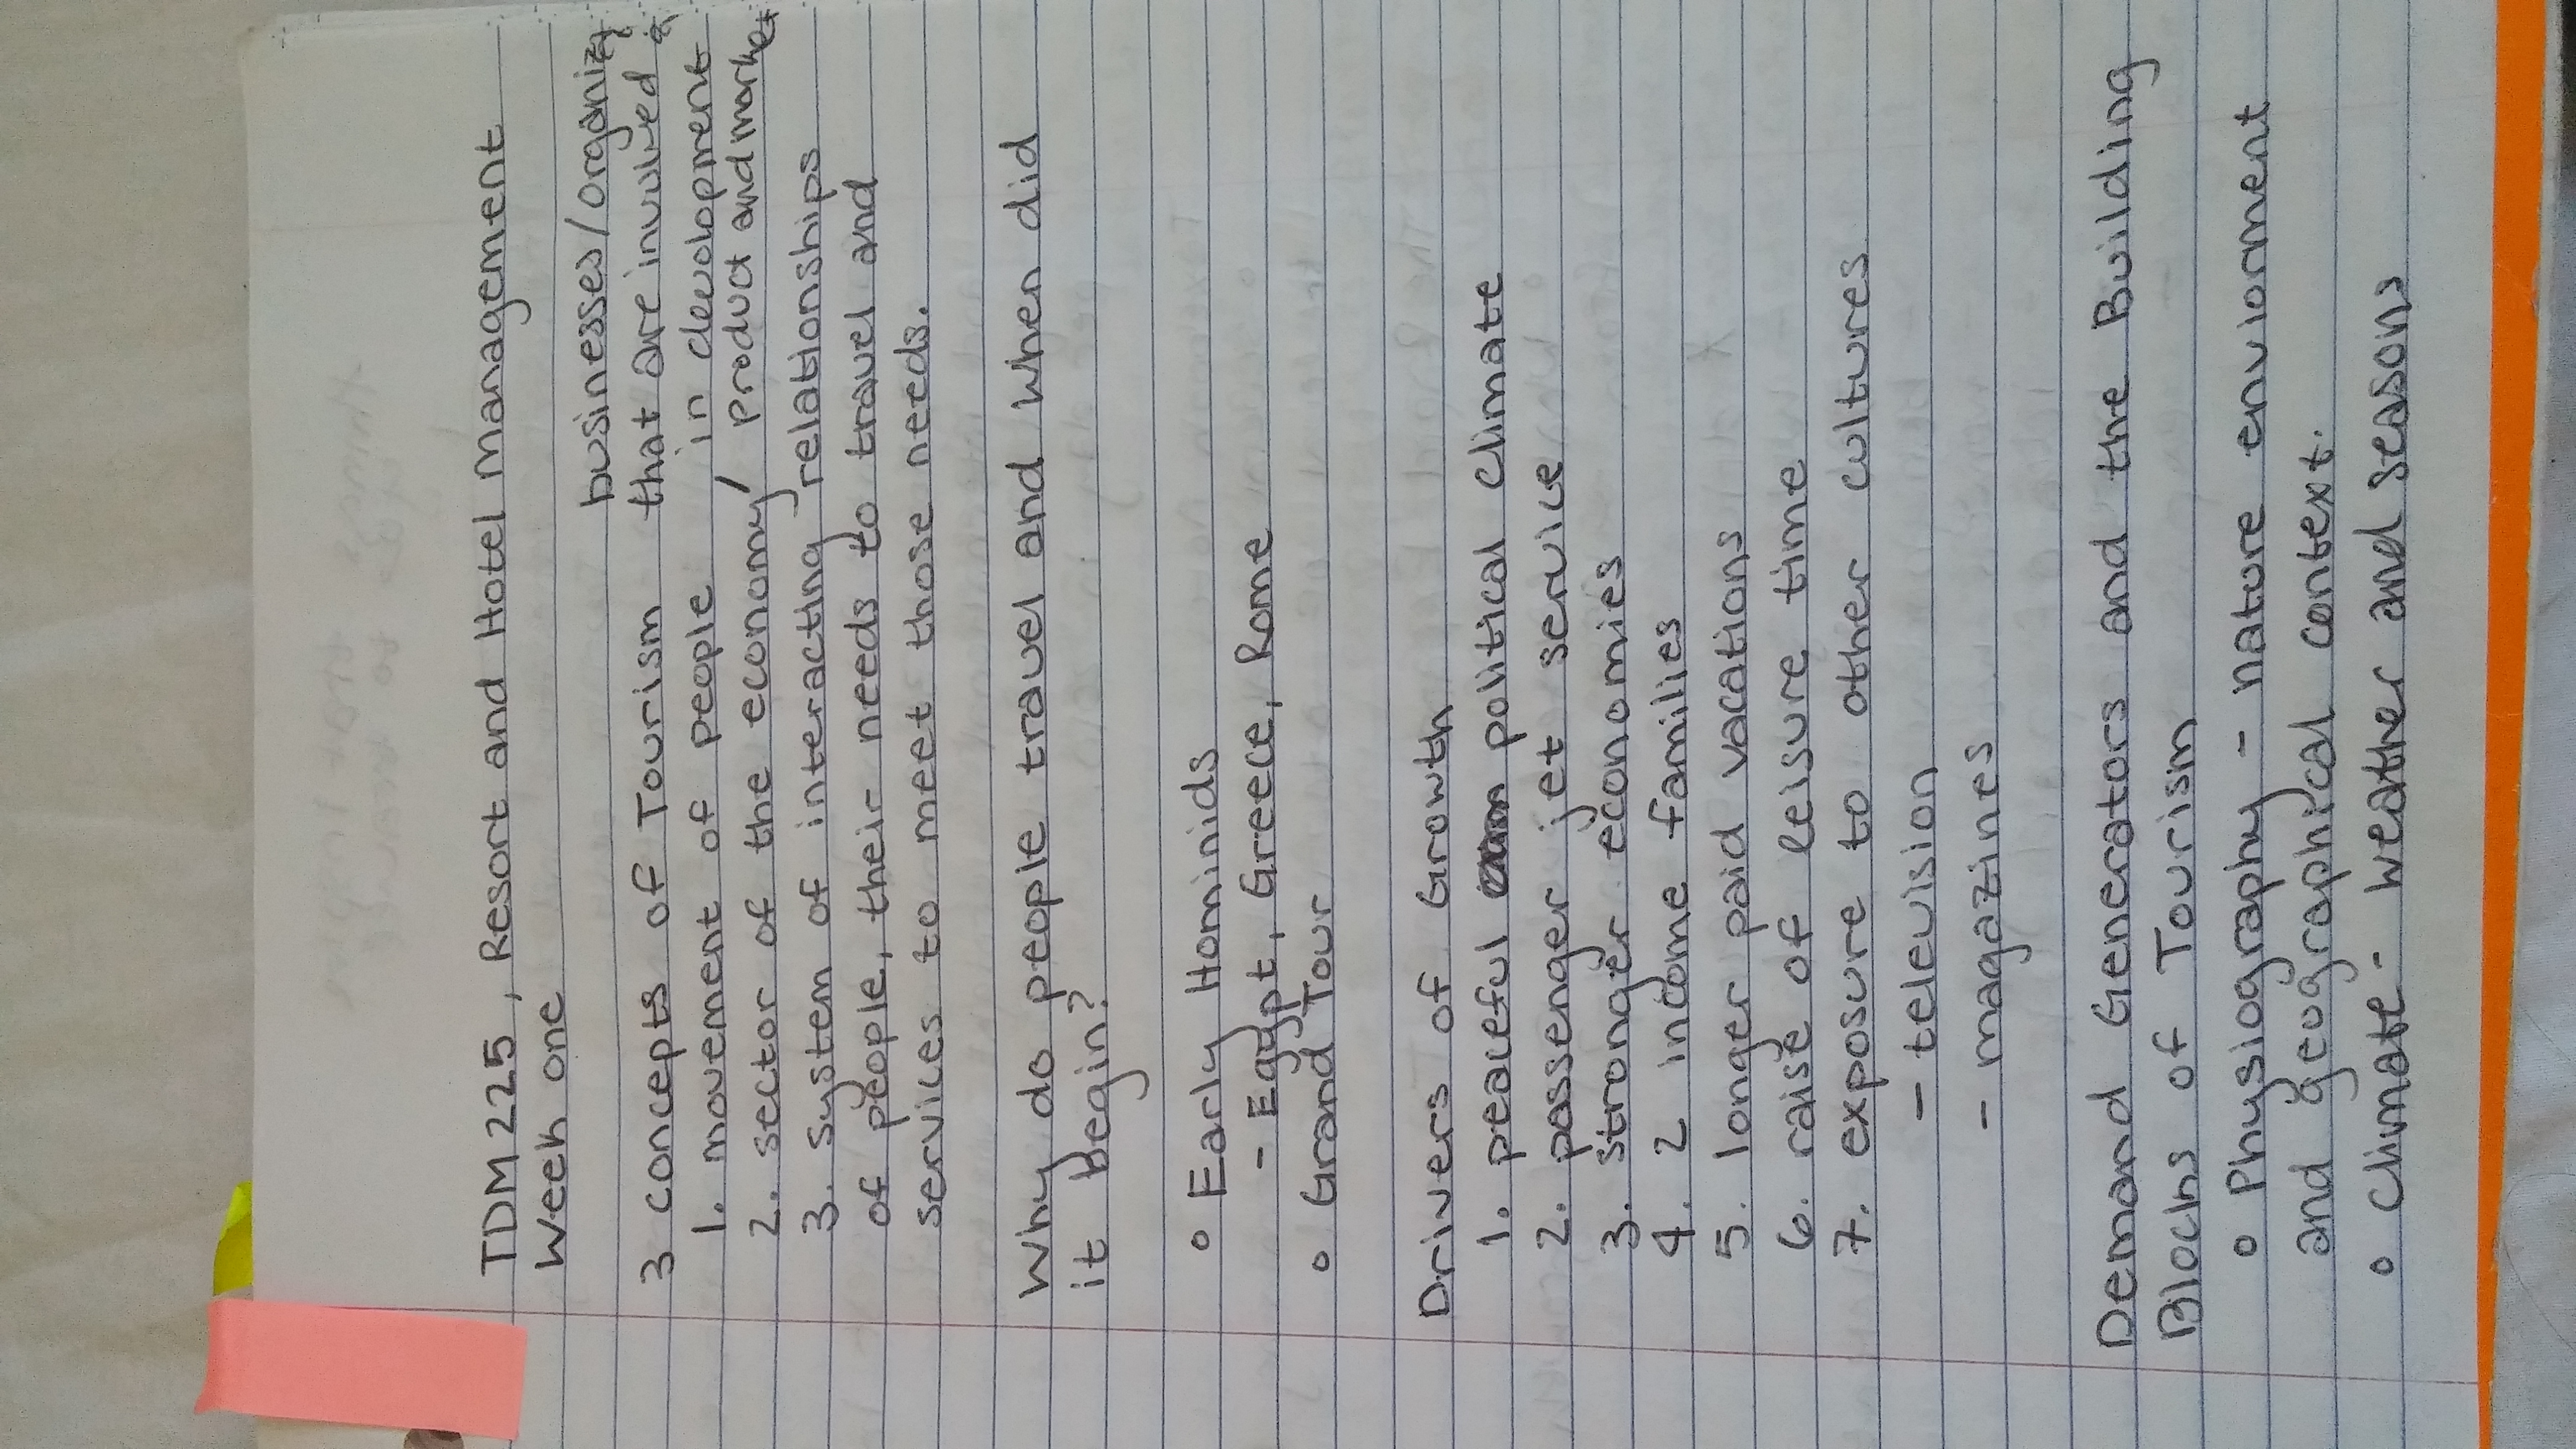 TDM 225, Resort and Hotel Management
Week one
businesses/organiz
3 concepts of Tourism that are involved
1. movement of people in development
2. sector of the economy/ product and market
3. system of interacting relationships
of people, their needs to travel and
services to meet those needs.
Why do people travel and when did
it begin?
• Early Hominids
- Egypt, Greece, Rome
• Grand Tour
Drivers of Growth
1. peaceful political climate
2. passenger jet service
3. stronger economies
4. 2 income families
5. longer paid vacations
6. raise of leisure time
7. exposure to other cultures
- television
- magazines
Demand Generators and the Building
Blocks of Tourism
• Physiography - nature enviornment
and geographical context.
• Climate - weather and seasons